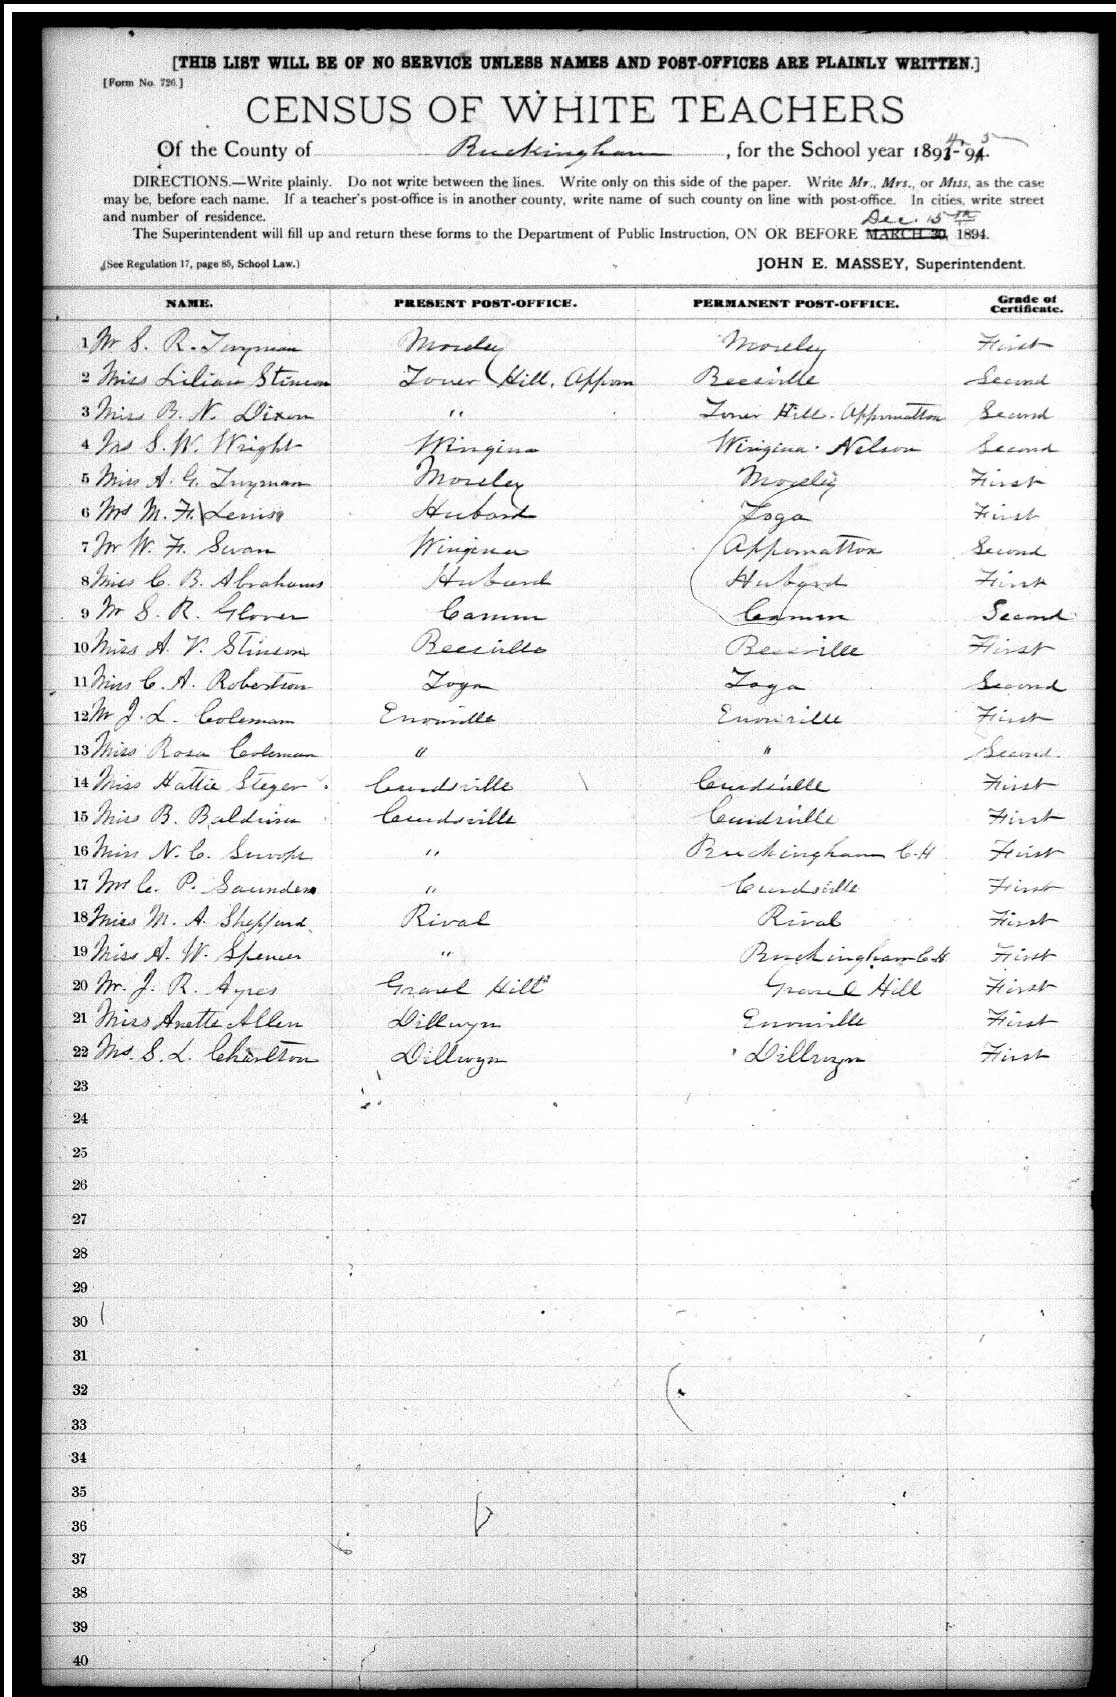 [THIS LIST WILL BE OF NO SERVICE UNLESS NAMES AND POST-OFFICES ARE PLAINLY WRITTEN.]
[Form No. 726.]
CENSUS OF WHITE TEACHERS
Of the County of Buckingham, for the School year 1894-95.
DIRECTIONS.—Write plainly. Do not write between the lines. Write only on this side of the paper. Write Mr., Mrs., or Miss, as the case
may be, before each name. If a teacher's post-office is in another county, write name of such county on line with post-office. In cities, write street
and number of residence.
Dec. 15th
The Superintendent will fill up and return these forms to the Department of Public Instruction, ON OR BEFORE MARCH 30, 1894.
(See Regulation 17, page 85, School Law.) JOHN E. MASSEY, Superintendent.
NAME. PRESENT POST-OFFICE. PERMANENT POST-OFFICE. Grade of Certificate.
1 Mr S. R. Twyman Moseley Moseley First
2 Miss Lilian Stinson Tower Hill, Appom Reesville Second
3 Miss B. N. Dixon " Tower Hill. Appomattox Second
4 S. W. Wright Wingina Wingina. Nelson Second
5 Miss A. G. Twyman Moseley Moseley First
6 M. F. Lewis Hubard Toga First
7 Mr W. F. Swan Wingina Appomattox Second
8 Miss C. B. Abrahams Hubard Hubard First
9 Mr S. R. Glover Camm Camm Second
10 Miss A. V. Stinson Reesville Reesville First
11 Miss C. A. Robertson Toga Toga Second
12 Mr J. L. Coleman Enonville Enonville First
13 Miss Rosa Coleman " " Second
14 Miss Hattie Steger Curdsville Curdsville First
15 Miss B. Baldwin Curdsville Curdsville First
16 Miss N. C. Swoope " Buckingham C.H First
17 C. P. Saunders " Curdsville First
18 Miss M. A. Sheppard Rival Rival First
19 Miss A. W. Spencer " Buckingham C.H First
20 Mr. J. R. Ayres Gravel Hill Gravel Hill First
21 Miss Anette Allen Dillwyn Enonville First
22 S. L. Charlton Dillwyn Dillwyn First
23
24
25
26
27
28
29
30
31
32
33
34
35
36
37
38
39
40